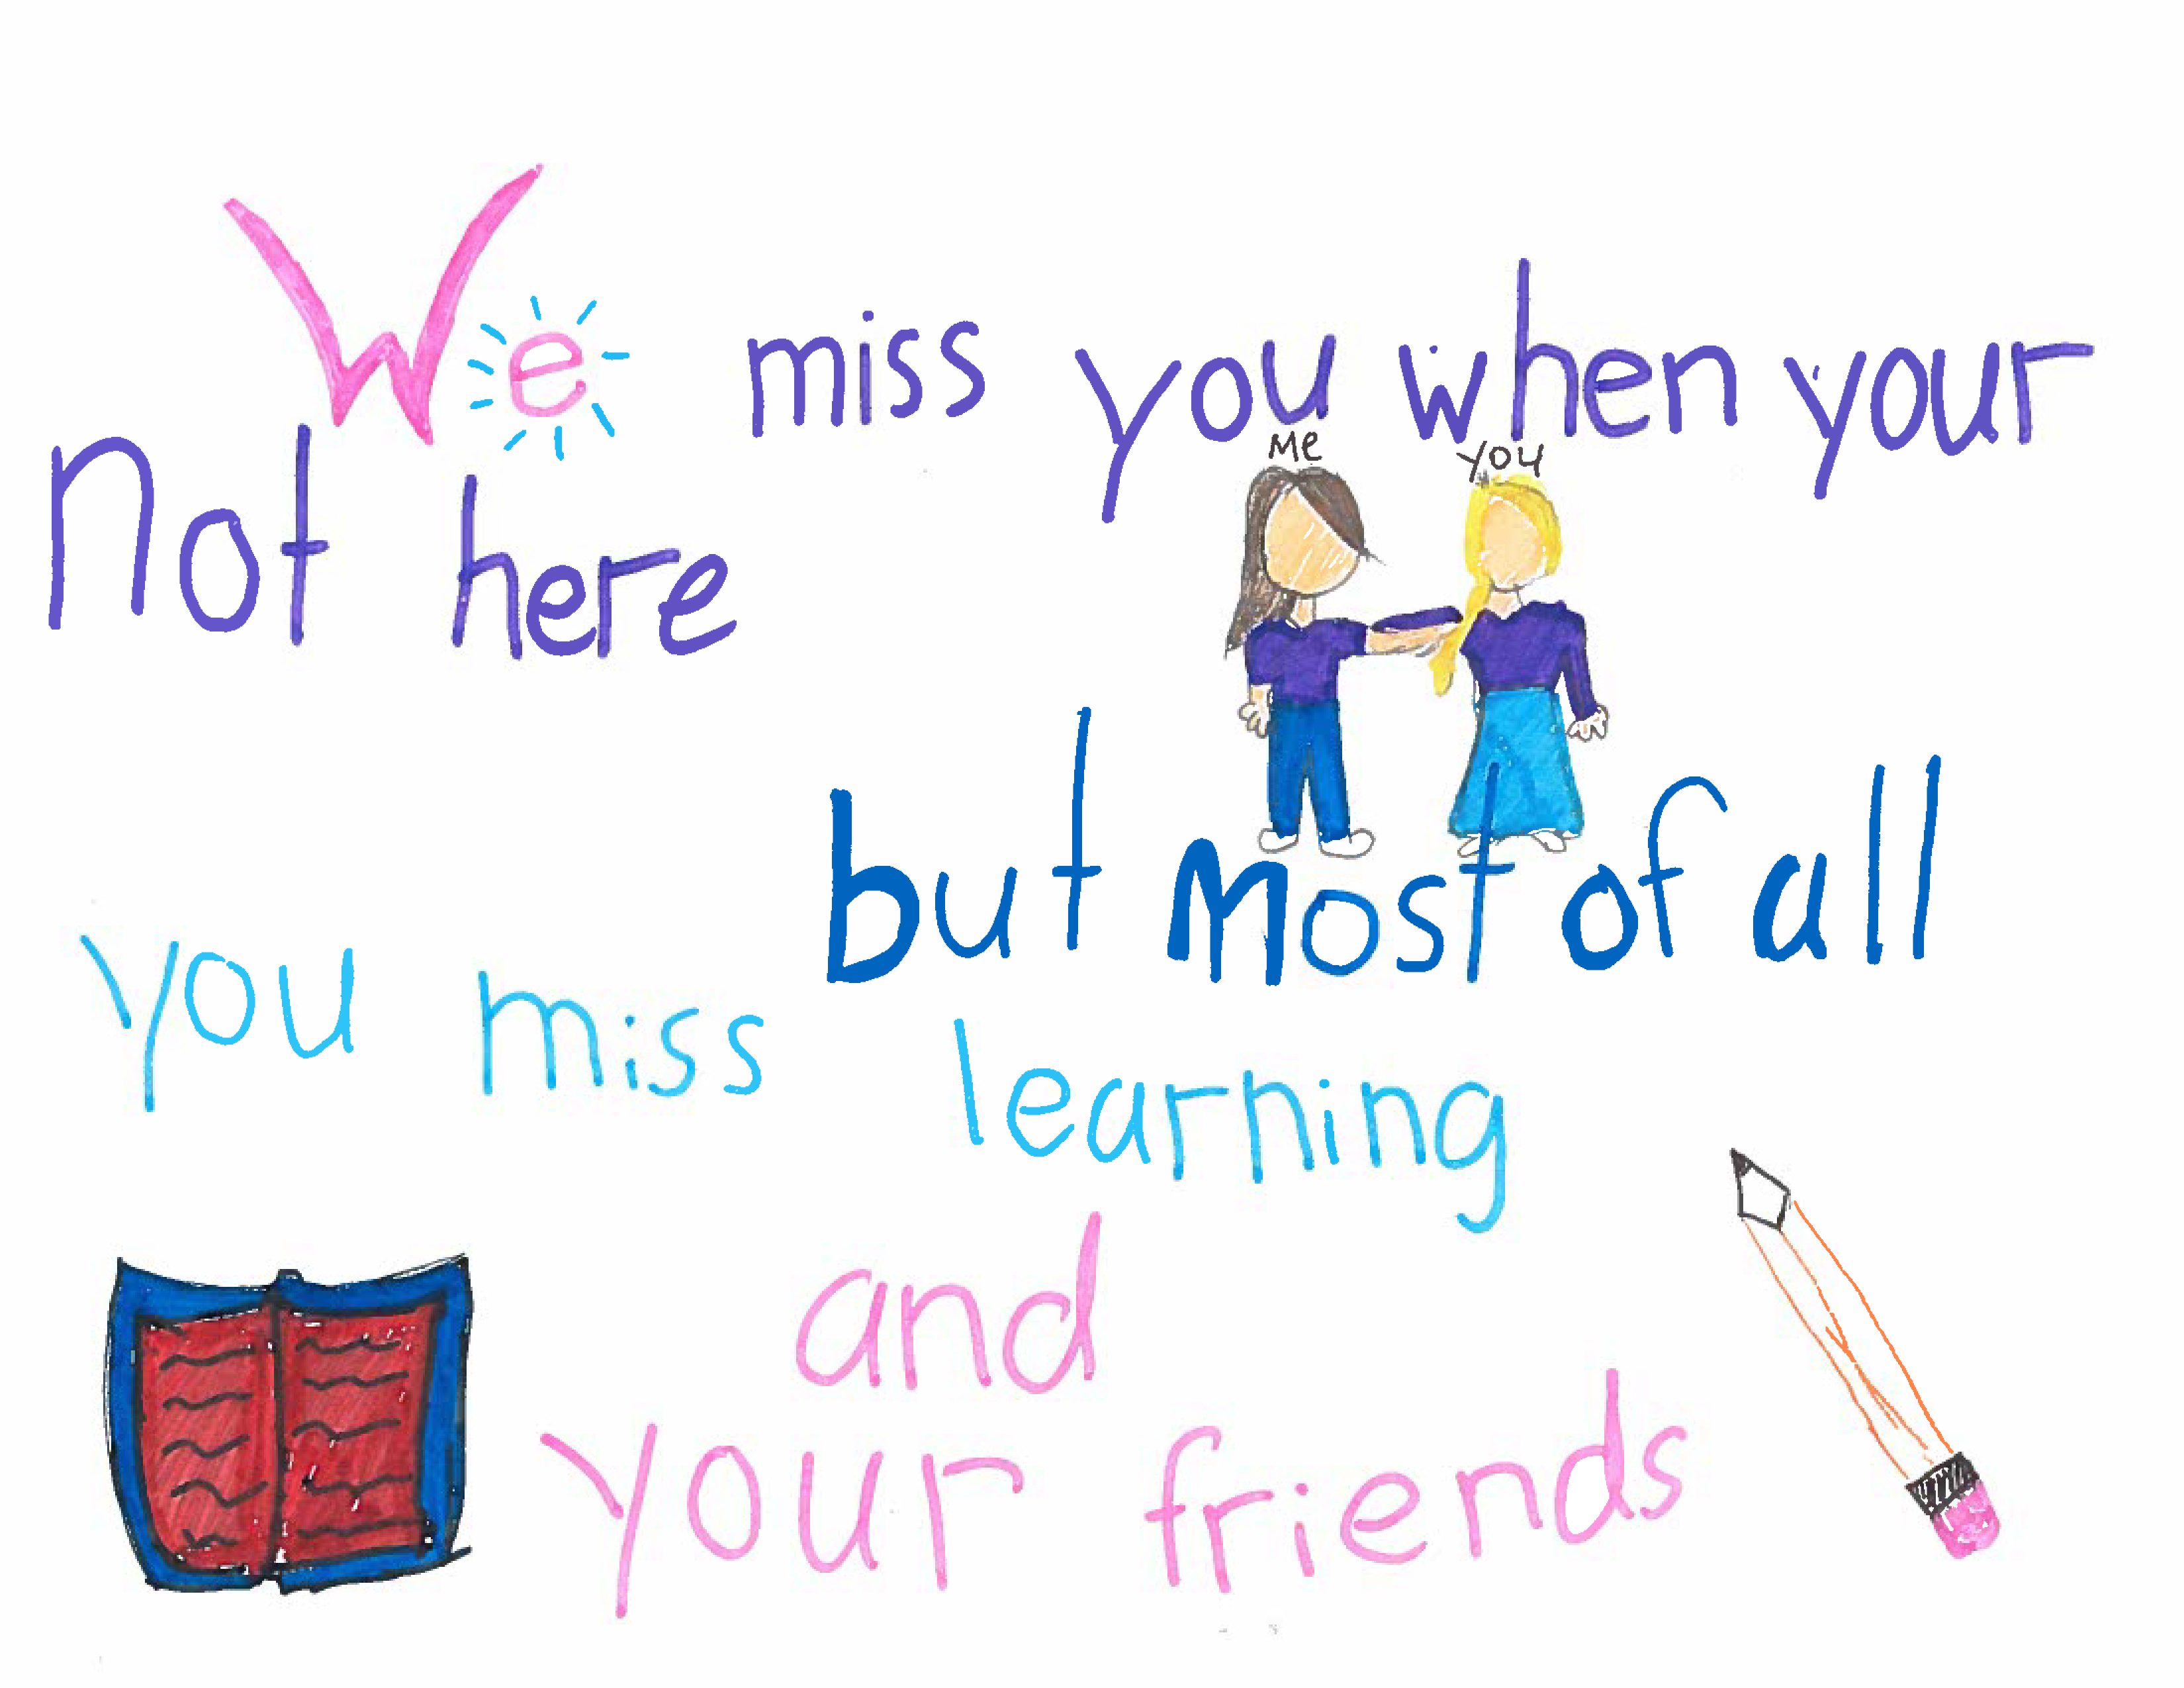 We miss you when your
Me you
not here
but Most of all
you miss learning
and
your friends